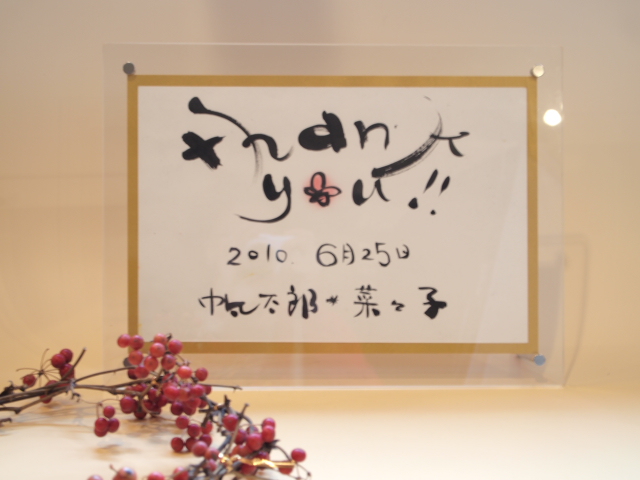 Thank
you!!
2010. 6月25日
帆太郎 菜々子